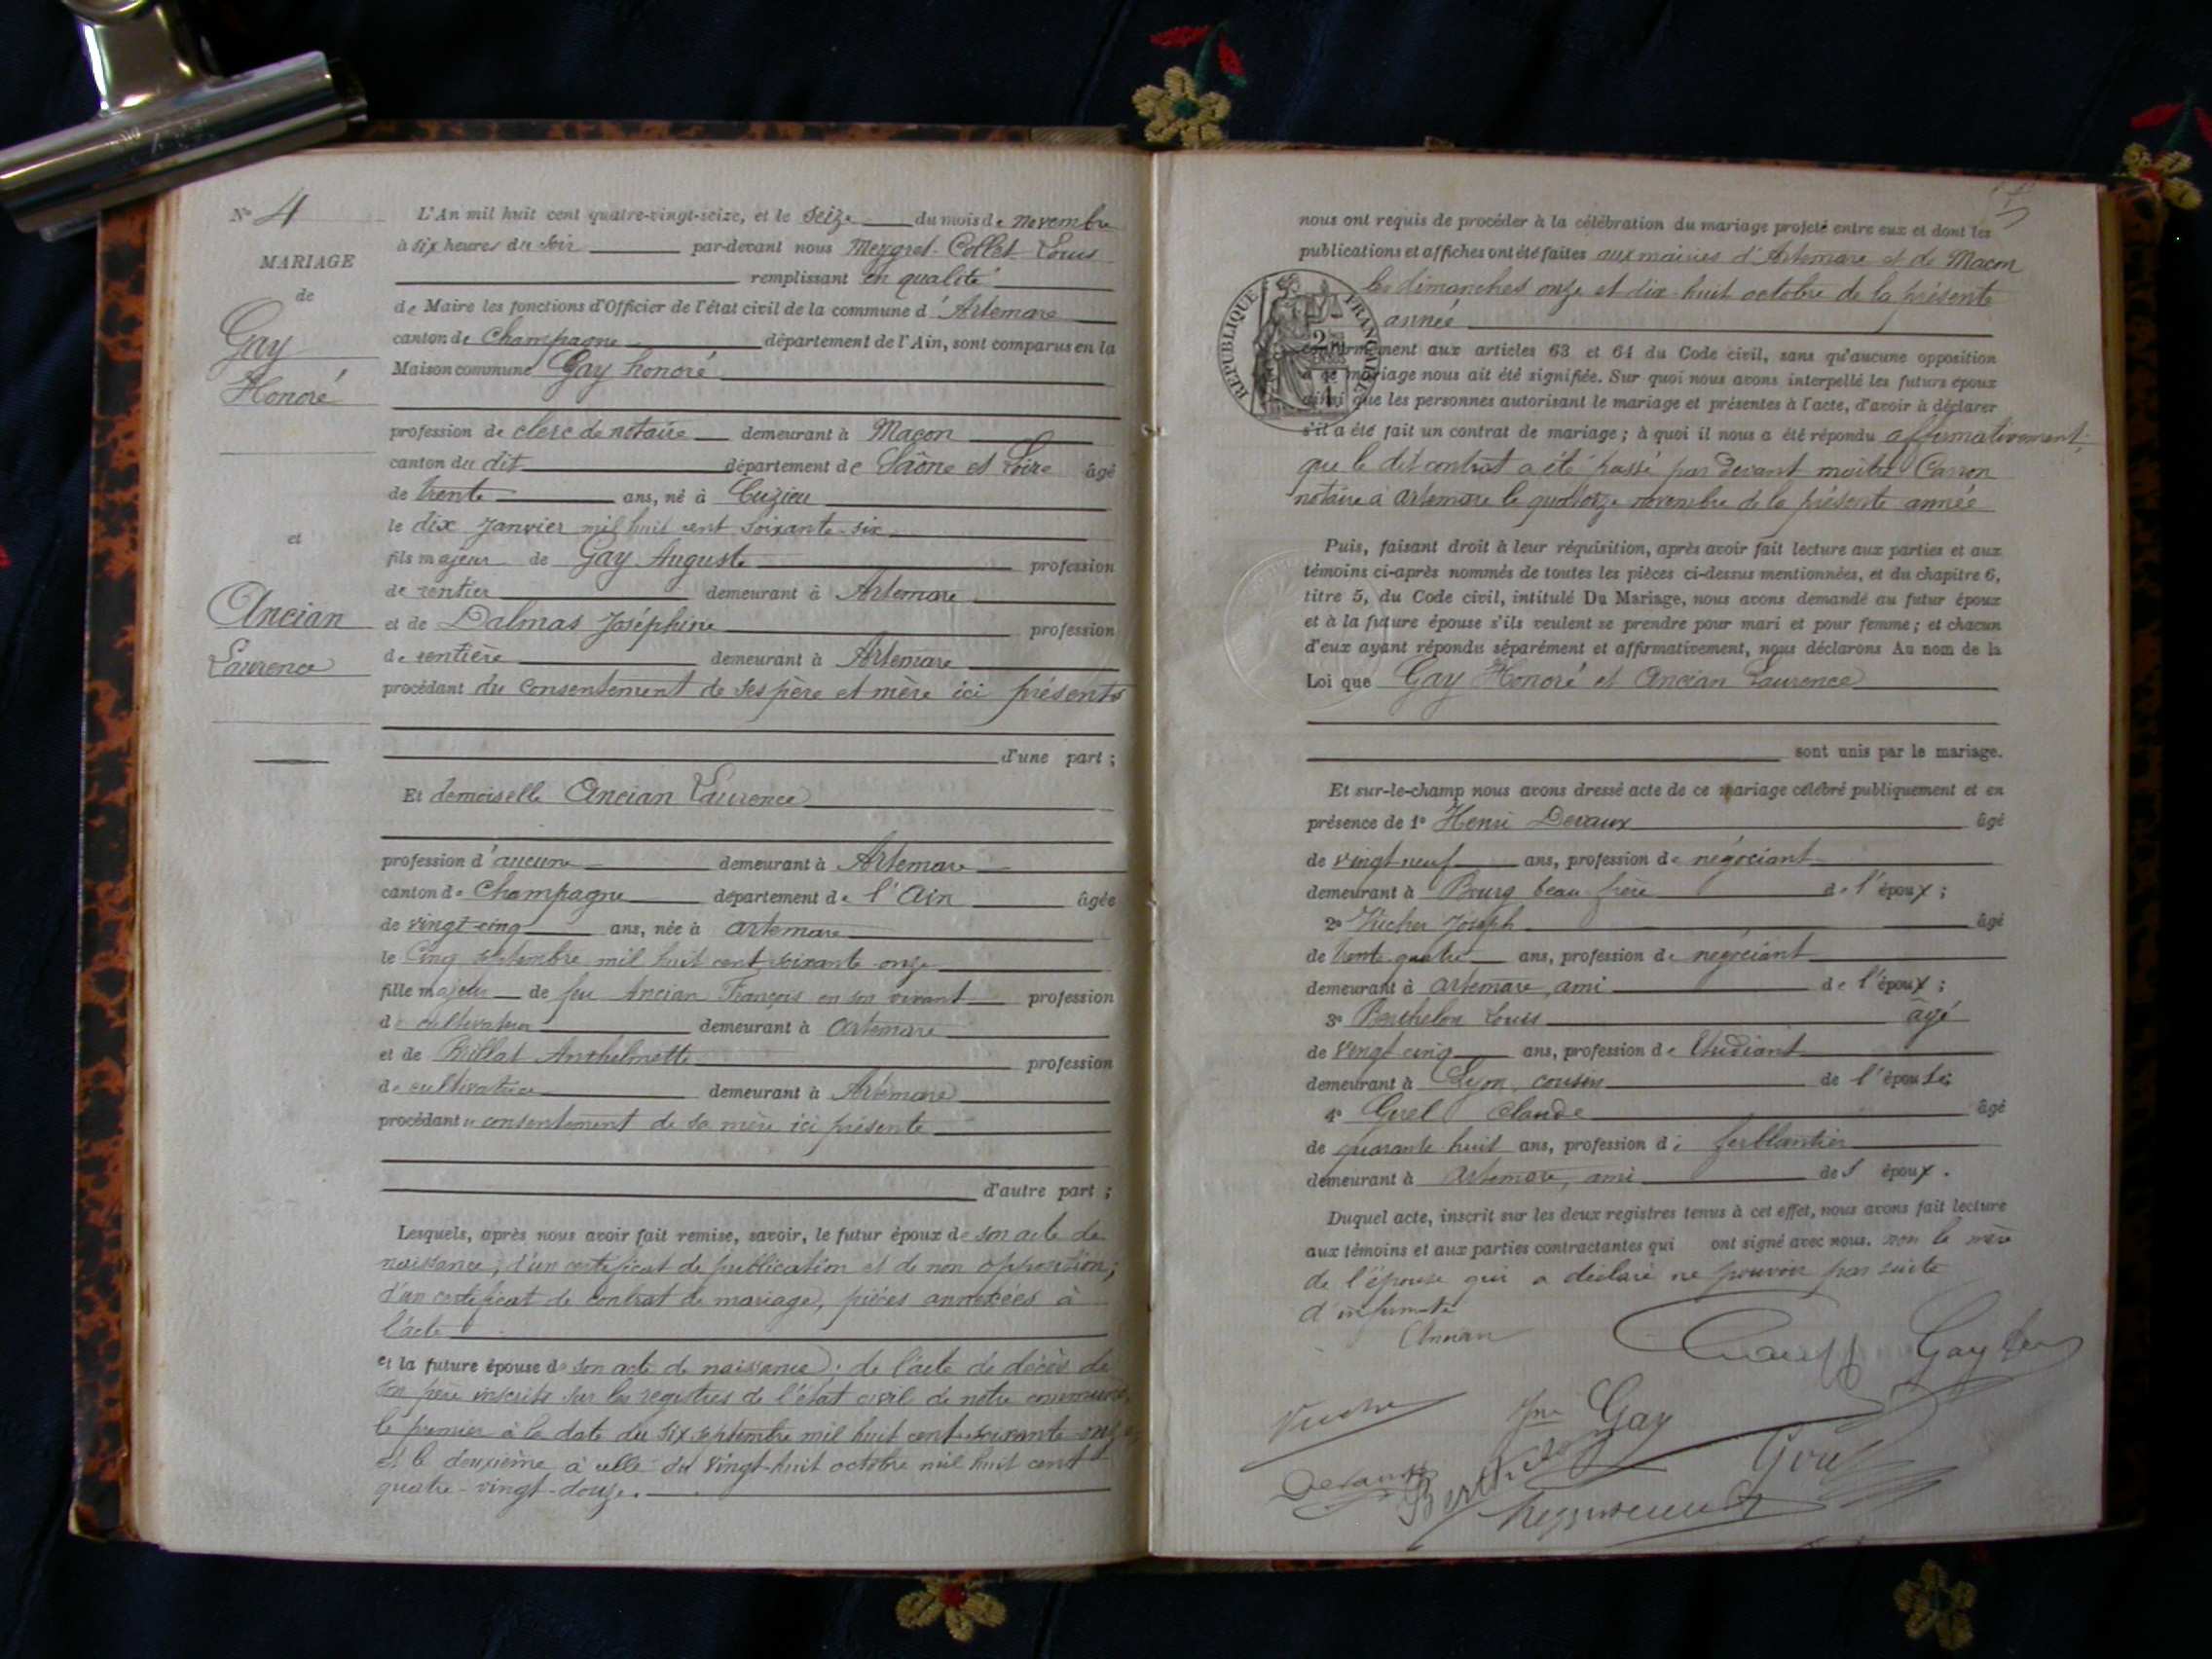 N° 4
MARIAGE
de
Gay
Honoré
et
Ancian
Laurence
L'An mil huit cent quatre-vingt-seize, et le seize du mois de novembre
à six heures du soir par-devant nous Meygret-Collet Louis
remplissant en qualité
de Maire les fonctions d'Officier de l'état civil de la commune d'Artemare
canton de Champagne département de l'Ain, sont comparus en la
Maison commune Gay honoré
profession de clerc de notaire demeurant à Macon
canton du dit département de Saône et Loire âgé
de trente ans, né à Cuzieu
le dix Janvier mil huit cent soixante-six
fils majeur de Gay Auguste profession
de rentier demeurant à Artemare
et de Dalmas Joséphine profession
de rentière demeurant à Artemare
procédant du consentement de ses père et mère ici présents
d'une part ;
Et demoiselle Ancian Laurence
profession d'aucune demeurant à Artemare
canton de Champagne département de l'Ain âgée
de vingt-cinq ans, née à artemare
le Cinq septembre mil huit cent soixante-onze
fille majeure de feu Ancian François en son vivant profession
de cultivateur demeurant à Artemare
et de Brillat Anthelmette profession
de cultivatrice demeurant à Artemare
procédant consentement de sa mère ici présente
d'autre part ;
Lesquels, après nous avoir fait remise, savoir, le futur époux de son acte de
naissance, d'un certificat de publication et de non opposition;
d'un certificat de contrat de mariage, pièces annexées à
l'acte
et la future épouse de son acte de naissance, de l'acte de décès de
son père inscrits sur les registres de l'état civil de notre commune,
le premier à la date du six septembre mil huit cent soixante-onze
et le deuxième à celle du vingt-huit octobre mil huit cent
quatre-vingt-douze.
5
nous ont requis de procéder à la célébration du mariage projeté entre eux et dont les
publications et affiches ont été faites aux mairies d'Artemare et de Macon
les dimanches onze et dix-huit octobre de la présente
année
RÉPUBLIQUE FRANÇAISE
conformément aux articles 63 et 64 du Code civil, sans qu'aucune opposition
à ce mariage nous ait été signifiée. Sur quoi nous avons interpellé les futurs époux
ainsi que les personnes autorisant le mariage et présentes à l'acte, d'avoir à déclarer
s'il a été fait un contrat de mariage ; à quoi il nous a été répondu affirmativement;
que le dit contrat a été passé par devant maître Carron
notaire à Artemare le quatorze novembre de la présente année
Puis, faisant droit à leur réquisition, après avoir fait lecture aux parties et aux
témoins ci-après nommés de toutes les pièces ci-dessus mentionnées, et du chapitre 6,
titre 5, du Code civil, intitulé Du Mariage, nous avons demandé au futur époux
et à la future épouse s'ils veulent se prendre pour mari et pour femme ; et chacun
d'eux ayant répondu séparément et affirmativement, nous déclarons Au nom de la
Loi que Gay Honoré et Ancian Laurence
sont unis par le mariage.
Et sur-le-champ nous avons dressé acte de ce mariage célébré publiquement et en
présence de 1° Henri Devaux âgé
de vingt-neuf ans, profession de négociant
demeurant à Bourg beau-frère de l'époux ;
2° Vucher Joseph âgé
de trente-quatre ans, profession de negociant
demeurant à artemare, ami de l'époux ;
3° Berthelon Louis âgé
de vingt-cinq ans, profession de Etudiant
demeurant à Lyon, cousin de l'épouse;
4° Girel Claude âgé
de quarante-huit ans, profession de ferblantier
demeurant à Artemare, ami de l'époux.
Duquel acte, inscrit sur les deux registres tenus à cet effet, nous avons fait lecture
aux témoins et aux parties contractantes qui ont signé avec nous. non la mère
de l'épouse qui a déclaré ne pouvoir par suite
d'infirmité
Ancian
Gay
Vucher
Gay
Devaux
Girel